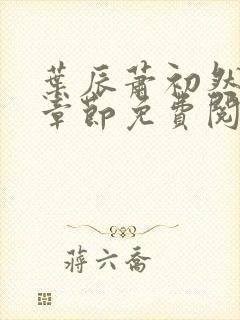 葉辰蕭初然
章節免費閱
蔣六喬